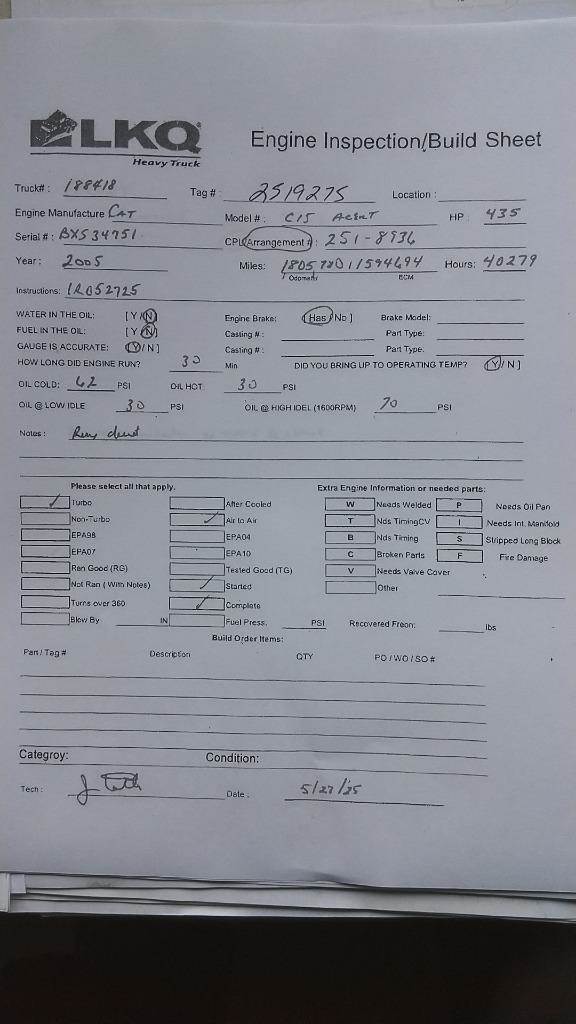 LKQ
Heavy Truck
Engine Inspection/Build Sheet
Truck#: 188418 Tag #: 2519275 Location:
Engine Manufacture CAT Model #: C15 Acert HP 435
Serial #: BXS34751 CPL/Arrangement #: 251-8936
Year: 2005 Miles: 1805780 / 1594694 Hours: 40279
Odometer ECM
Instructions: 1R052725
WATER IN THE OIL: [Y/N] Engine Brake: [Has/No] Brake Model:
FUEL IN THE OIL: [Y/N] Casting #: Part Type:
GAUGE IS ACCURATE: [Y/N] Casting #: Part Type:
HOW LONG DID ENGINE RUN? 30 Min DID YOU BRING UP TO OPERATING TEMP? [Y/N]
OIL COLD: 62 PSI OIL HOT 30 PSI
OIL @ LOW IDLE 30 PSI OIL @ HIGH IDEL (1600RPM) 70 PSI
Notes:
Please select all that apply. Extra Engine Information or needed parts:
Turbo After Cooled W Needs Welded P Needs Oil Pan
Non-Turbo Air to Air T Nds TimingCV I Needs Int. Manifold
EPA98 EPA04 B Nds Timing S Stripped Long Block
EPA07 EPA10 C Broken Parts F Fire Damage
Ran Good (RG) Tested Good (TG) V Needs Valve Cover
Not Ran (With Notes) Started Other
Turns over 360 Complete
Blow By IN Fuel Press. PSI Recovered Freon: lbs
Build Order Items:
Part / Tag # Description QTY PO / WO / SO #
Categroy: Condition:
Tech: Date: 5/27/25